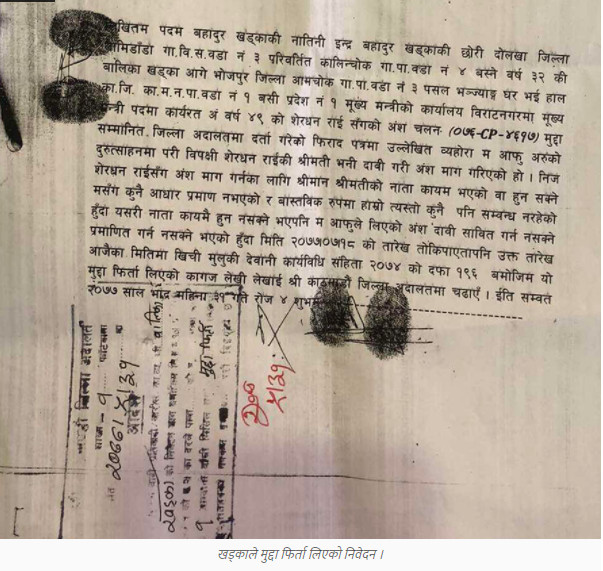 लिखितम पदम बहादुर खड्काकी नातिनी इन्द्र बहादुर खड्काकी छोरी दोलखा जिल्ला
लामिडाँडा गा.वि.स.वडा नं ३ परिवर्तित कालिन्चोक गा.पा.वडा नं ४ बस्ने वर्ष ३२ की
बालिका खड्का आगे भोजपुर जिल्ला आमचोक गा.पा.वडा नं ३ पसल भञ्ज्याङ्ग घर भई हाल
का.जि. का.म.न.पा.वडा नं १ बसी प्रदेश नं १ मूख्य मन्त्रीको कार्यालय विराटनगरमा मूख्य
मन्त्री पदमा कार्यरत अं वर्ष ४९ को शेरधन राई सँगको अंश चलन (०७६-CP-४६१७) मुद्दा
सम्मानित जिल्ला अदालतमा दर्ता गरेको फिराद पत्रमा उल्लेखित व्यहोरा म आफु अरुको
दुरुत्साहनमा परी विपक्षी शेरधन राईकी श्रीमती भनी दाबी गरी अंश माग गरिएको हो । निज
शेरधन राईसँग अंश माग गर्नका लागि श्रीमान श्रीमतीको नाता कायम भएको वा हुन सक्ने
मसँग कुनै आधार प्रमाण नभएको र बास्तविक रुपमा हाम्रो त्यस्तो कुनै पनि सम्बन्ध नरहेको
हुँदा यसरी नाता कायमै हुन नसक्ने भएपनि म आफुले लिएको अंश दावी सावित गर्न नसक्ने
प्रमाणित गर्न नसक्ने भएको हुँदा मिति २०७७०७१८ को तारेख तोकिपाएतापनि उक्त तारेख
आजैका मितिमा खिची मुलुकी देवानी कार्यविधि संहिता २०७४ को दफा १९६ बमोजिम यो
मुद्दा फिर्ता लिएको कागज लेखी लेखाई श्री काठमाडौं जिल्ला अदालतमा चढाएँ । ईति सम्वत
२०७७ साल भाद्र महिना ३१ गते रोज ४ शुभम्
जिल्ला अदालत
आदेश
मुद्दा फिर्ता
खड्काले मुद्दा फिर्ता लिएको निवेदन ।